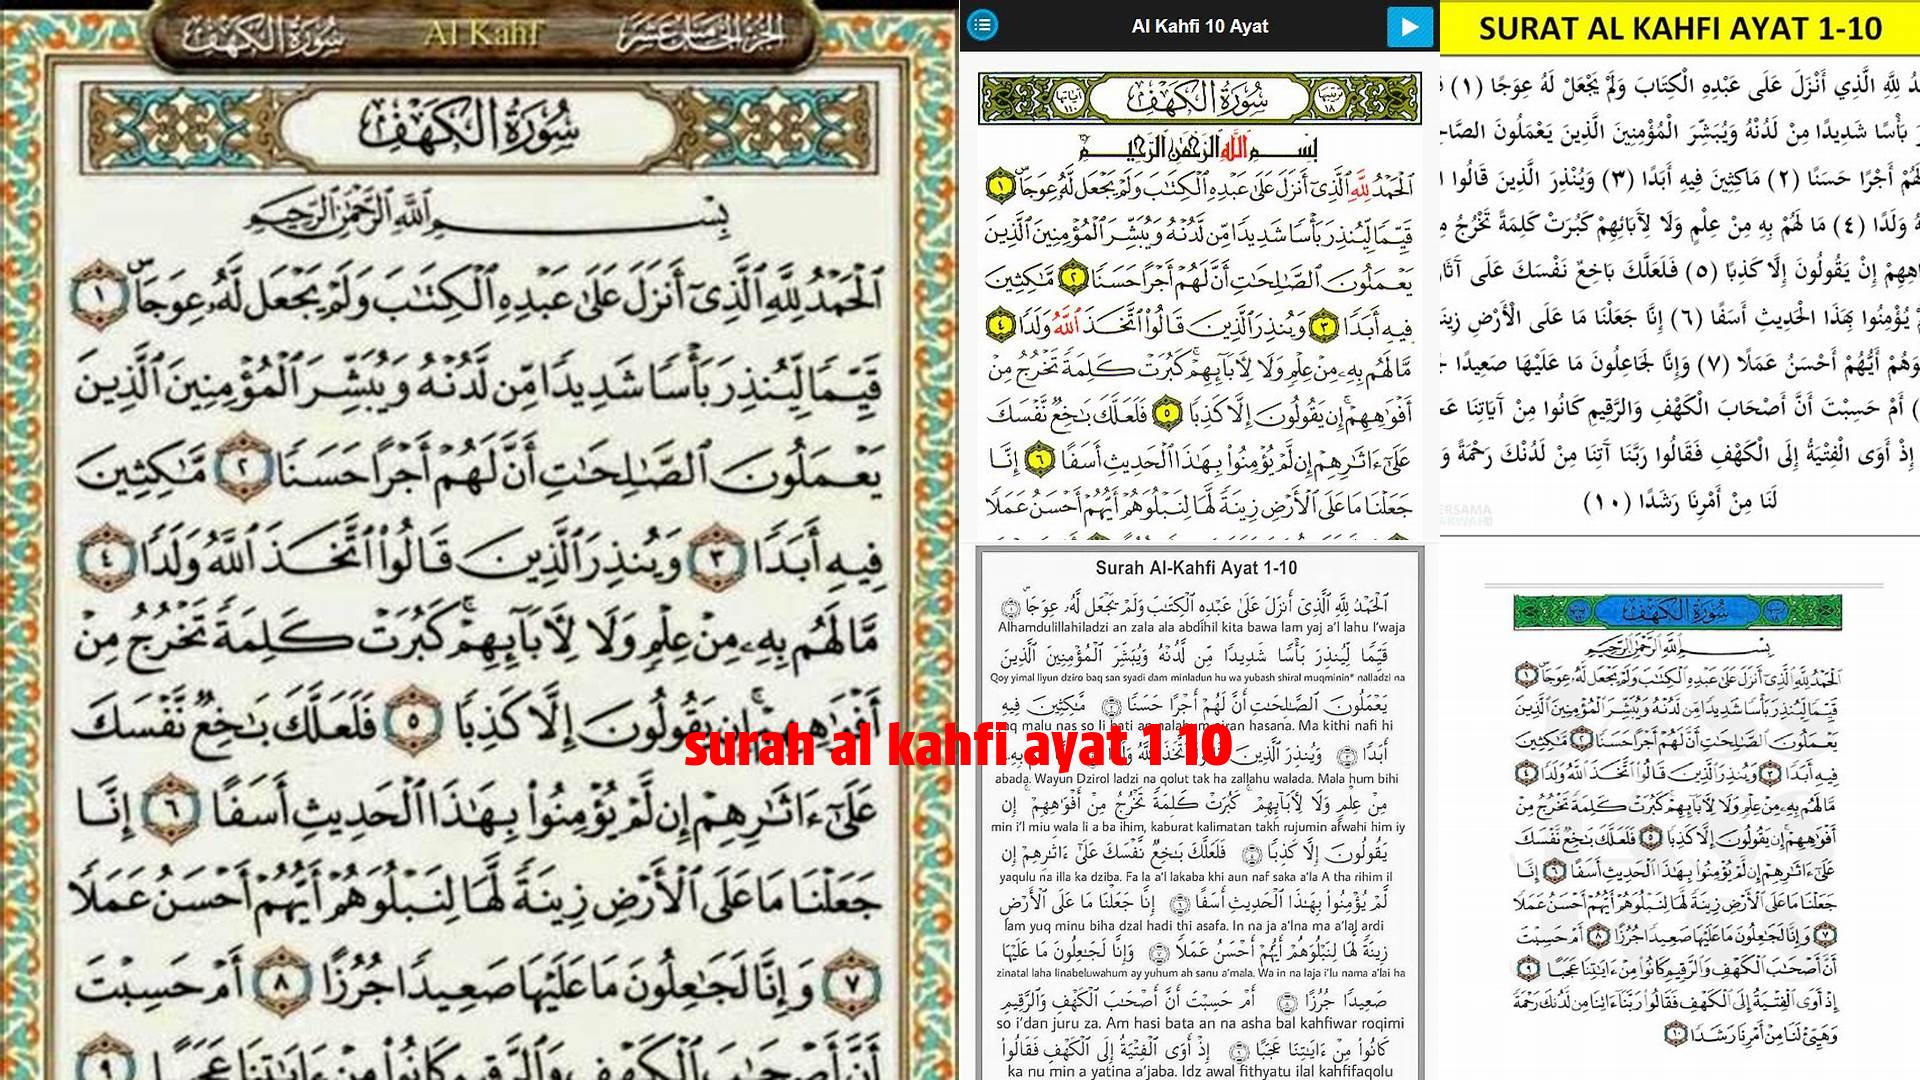 سُورَةُ الكَهْفِ Al Kahf الجُزْءُ الخَامِسَ عَشَرَ
سُورَةُ الكَهْفِ
بِسْمِ ٱللَّهِ ٱلرَّحْمَٰنِ ٱلرَّحِيمِ
ٱلْحَمْدُ لِلَّهِ ٱلَّذِىٓ أَنزَلَ عَلَىٰ عَبْدِهِ ٱلْكِتَٰبَ وَلَمْ يَجْعَل لَّهُۥ عِوَجَاۜ ١
قَيِّمًا لِّيُنذِرَ بَأْسًا شَدِيدًا مِّن لَّدُنْهُ وَيُبَشِّرَ ٱلْمُؤْمِنِينَ ٱلَّذِينَ
يَعْمَلُونَ ٱلصَّٰلِحَٰتِ أَنَّ لَهُمْ أَجْرًا حَسَنًا ٢ مَّٰكِثِينَ
فِيهِ أَبَدًا ٣ وَيُنذِرَ ٱلَّذِينَ قَالُوا۟ ٱتَّخَذَ ٱللَّهُ وَلَدًا ٤
مَّا لَهُم بِهِۦ مِنْ عِلْمٍ وَلَا لِءَابَآئِهِمْ ۚ كَبُرَتْ كَلِمَةً تَخْرُجُ مِنْ
أَفْوَٰهِهِمْ ۚ إِن يَقُولُونَ إِلَّا كَذِبًا ٥ فَلَعَلَّكَ بَٰخِعٌ نَّفْسَكَ
عَلَىٰٓ ءَاثَٰرِهِمْ إِن لَّمْ يُؤْمِنُوا۟ بِهَٰذَا ٱلْحَدِيثِ أَسَفًا ٦ إِنَّا
جَعَلْنَا مَا عَلَى ٱلْأَرْضِ زِينَةً لَّهَا لِنَبْلُوَهُمْ أَيُّهُمْ أَحْسَنُ عَمَلًا
٧ وَإِنَّا لَجَٰعِلُونَ مَا عَلَيْهَا صَعِيدًا جُرُزًا ٨ أَمْ حَسِبْتَ
أَنَّ أَصْحَٰبَ ٱلْكَهْفِ وَٱلرَّقِيمِ كَانُوا۟ مِنْ ءَايَٰتِنَا عَجَبًا ٩
Al Kahfi 10 Ayat
سُورَةُ الكَهْفِ
بِسْمِ ٱللَّهِ ٱلرَّحْمَٰنِ ٱلرَّحِيمِ
ٱلْحَمْدُ لِلَّهِ ٱلَّذِىٓ أَنزَلَ عَلَىٰ عَبْدِهِ ٱلْكِتَٰبَ وَلَمْ يَجْعَل لَّهُۥ عِوَجَاۜ ١
قَيِّمًا لِّيُنذِرَ بَأْسًا شَدِيدًا مِّن لَّدُنْهُ وَيُبَشِّرَ ٱلْمُؤْمِنِينَ ٱلَّذِينَ
يَعْمَلُونَ ٱلصَّٰلِحَٰتِ أَنَّ لَهُمْ أَجْرًا حَسَنًا ٢ مَّٰكِثِينَ
فِيهِ أَبَدًا ٣ وَيُنذِرَ ٱلَّذِينَ قَالُوا۟ ٱتَّخَذَ ٱللَّهُ وَلَدًا ٤
مَّا لَهُم بِهِۦ مِنْ عِلْمٍ وَلَا لِءَابَآئِهِمْ ۚ كَبُرَتْ كَلِمَةً تَخْرُجُ مِنْ
أَفْوَٰهِهِمْ ۚ إِن يَقُولُونَ إِلَّا كَذِبًا ٥ فَلَعَلَّكَ بَٰخِعٌ نَّفْسَكَ
عَلَىٰٓ ءَاثَٰرِهِمْ إِن لَّمْ يُؤْمِنُوا۟ بِهَٰذَا ٱلْحَدِيثِ أَسَفًا ٦ إِنَّا
جَعَلْنَا مَا عَلَى ٱلْأَرْضِ زِينَةً لَّهَا لِنَبْلُوَهُمْ أَيُّهُمْ أَحْسَنُ عَمَلًا
SURAT AL KAHFI AYAT 1-10
لِلَّهِ الَّذِي أَنْزَلَ عَلَى عَبْدِهِ الْكِتَابَ وَلَمْ يَجْعَلْ لَهُ عِوَجًا (١)
بَأْسًا شَدِيدًا مِنْ لَدُنْهُ وَيُبَشِّرَ الْمُؤْمِنِينَ الَّذِينَ يَعْمَلُونَ
لَهُمْ أَجْرًا حَسَنًا (٢) مَاكِثِينَ فِيهِ أَبَدًا (٣) وَيُنْذِرَ الَّذِينَ قَالُوا
وَلَدًا (٤) مَا لَهُمْ بِهِ مِنْ عِلْمٍ وَلَا لِآبَائِهِمْ كَبُرَتْ كَلِمَةً تَخْرُجُ
إِنْ يَقُولُونَ إِلَّا كَذِبًا (٥) فَلَعَلَّكَ بَاخِعٌ نَفْسَكَ عَلَى
يُؤْمِنُوا بِهَذَا الْحَدِيثِ أَسَفًا (٦) إِنَّا جَعَلْنَا مَا عَلَى الْأَرْضِ
أَيُّهُمْ أَحْسَنُ عَمَلًا (٧) وَإِنَّا لَجَاعِلُونَ مَا عَلَيْهَا صَعِيدًا
أَمْ حَسِبْتَ أَنَّ أَصْحَابَ الْكَهْفِ وَالرَّقِيمِ كَانُوا مِنْ آيَاتِنَا
إِذْ أَوَى الْفِتْيَةُ إِلَى الْكَهْفِ فَقَالُوا رَبَّنَا آتِنَا مِنْ لَدُنْكَ رَحْمَةً
لَنَا مِنْ أَمْرِنَا رَشَدًا (١٠)
Surah Al-Kahfi Ayat 1-10
ٱلْحَمْدُ لِلَّهِ ٱلَّذِىٓ أَنزَلَ عَلَىٰ عَبْدِهِ ٱلْكِتَٰبَ وَلَمْ يَجْعَل لَّهُۥ عِوَجَاۜ ١
Alhamdulillahiladzi an zala ala abdihil kita bawa lam yaj a'l lahu I'waja
قَيِّمًا لِّيُنذِرَ بَأْسًا شَدِيدًا مِّن لَّدُنْهُ وَيُبَشِّرَ ٱلْمُؤْمِنِينَ ٱلَّذِينَ
Qoy yimal liyun dziro baq san syadi dam minladun hu wa yubash shiral muqminin* nalladzi na
يَعْمَلُونَ ٱلصَّٰلِحَٰتِ أَنَّ لَهُمْ أَجْرًا حَسَنًا ٢ مَّٰكِثِينَ فِيهِ
malu nas so li hasana. Ma kithi nafi hi
surah al kahfi ayat 1 10
أَبَدًا ٣ وَيُنذِرَ ٱلَّذِينَ
abada. Wayun Dzirol ladzi na qolut tak ha zallahu walada. Mala hum bihi
مِنْ عِلْمٍ وَلَا لِءَابَآئِهِمْ ۚ كَبُرَتْ كَلِمَةً تَخْرُجُ مِنْ أَفْوَٰهِهِمْ ۚ إِن
min i'l miu wala li a ba ihim, kaburat kalimatan takh rujumin afwahi him iy
يَقُولُونَ إِلَّا كَذِبًا ٥ فَلَعَلَّكَ بَٰخِعٌ نَّفْسَكَ عَلَىٰٓ ءَاثَٰرِهِمْ إِن
yaqulu na illa ka dziba. Fa la a'l lakaba khi aun naf saka a'la A tha rihim il
لَّمْ يُؤْمِنُوا۟ بِهَٰذَا ٱلْحَدِيثِ أَسَفًا ٦ إِنَّا جَعَلْنَا مَا عَلَى ٱلْأَرْضِ
lam yuq minu biha dzal hadi thi asafa. In na ja a'lna ma a'lal ardi
زِينَةً لَّهَا لِنَبْلُوَهُمْ أَيُّهُمْ أَحْسَنُ عَمَلًا ٧ وَإِنَّا لَجَٰعِلُونَ مَا عَلَيْهَا
zinatal laha linabeluwahum ay yuhum ah sanu a'mala. Wa in na laja i'lu nama a'lai ha
صَعِيدًا جُرُزًا ٨ أَمْ حَسِبْتَ أَنَّ أَصْحَٰبَ ٱلْكَهْفِ وَٱلرَّقِيمِ
so i'dan juru za. Am hasi bata an na asha bal kahfiwar roqimi
كَانُوا۟ مِنْ ءَايَٰتِنَا عَجَبًا ٩ إِذْ أَوَى ٱلْفِتْيَةُ إِلَى ٱلْكَهْفِ فَقَالُوا۟
ka nu min a yatina a'jaba. Idz awal fithyatu ilal kahfifaqolu
سُورَةُ الكَهْفِ
بِسْمِ ٱللَّهِ ٱلرَّحْمَٰنِ ٱلرَّحِيمِ
ٱلْحَمْدُ لِلَّهِ ٱلَّذِىٓ أَنزَلَ عَلَىٰ عَبْدِهِ ٱلْكِتَٰبَ وَلَمْ يَجْعَل لَّهُۥ عِوَجَاۜ ١
قَيِّمًا لِّيُنذِرَ بَأْسًا شَدِيدًا مِّن لَّدُنْهُ وَيُبَشِّرَ ٱلْمُؤْمِنِينَ ٱلَّذِينَ
يَعْمَلُونَ ٱلصَّٰلِحَٰتِ أَنَّ لَهُمْ أَجْرًا حَسَنًا ٢ مَّٰكِثِينَ
فِيهِ أَبَدًا ٣ وَيُنذِرَ ٱلَّذِينَ قَالُوا۟ ٱتَّخَذَ ٱللَّهُ وَلَدًا ٤
مَّا لَهُم بِهِۦ مِنْ عِلْمٍ وَلَا لِءَابَآئِهِمْ ۚ كَبُرَتْ كَلِمَةً تَخْرُجُ مِنْ
أَفْوَٰهِهِمْ ۚ إِن يَقُولُونَ إِلَّا كَذِبًا ٥ فَلَعَلَّكَ بَٰخِعٌ نَّفْسَكَ
عَلَىٰٓ ءَاثَٰرِهِمْ إِن لَّمْ يُؤْمِنُوا۟ بِهَٰذَا ٱلْحَدِيثِ أَسَفًا ٦ إِنَّا
جَعَلْنَا مَا عَلَى ٱلْأَرْضِ زِينَةً لَّهَا لِنَبْلُوَهُمْ أَيُّهُمْ أَحْسَنُ عَمَلًا
٧ وَإِنَّا لَجَٰعِلُونَ مَا عَلَيْهَا صَعِيدًا جُرُزًا ٨ أَمْ حَسِبْتَ
أَنَّ أَصْحَٰبَ ٱلْكَهْفِ وَٱلرَّقِيمِ كَانُوا۟ مِنْ ءَايَٰتِنَا عَجَبًا ٩
إِذْ أَوَى ٱلْفِتْيَةُ إِلَى ٱلْكَهْفِ فَقَالُوا۟ رَبَّنَآ ءَاتِنَا مِن لَّدُنكَ رَحْمَةً
وَهَيِّئْ لَنَا مِنْ أَمْرِنَا رَشَدًا ١٠